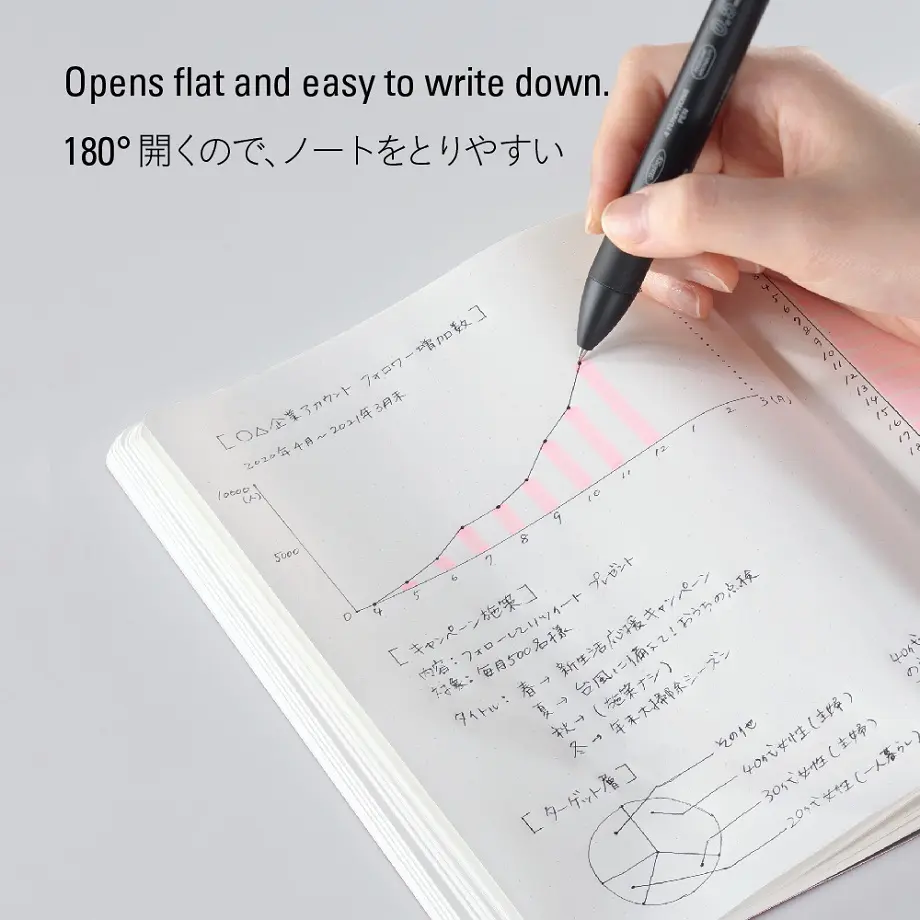 Opens flat and easy to write down.
180° 開くので、ノートをとりやすい
4 FUNCTION
PEN
[○△企業アカウント フォロワー増加数]
2020年4月～2021年3月末
10000
(人)
5000
0
4 5 6 7 8 9 10 11 12 1 2 3(月)
[キャンペーン施策]
内容：フォローしてリツイート プレゼント
対象：毎月500名様
タイトル：春→新生活応援キャンペーン
夏→台風に備えて！おうちの点検
秋→(施策ナシ)
冬→年末大掃除シーズン
[ターゲット層]
その他
40代女性(主婦)
30代女性(主婦)
20代女性(一人暮らし)
4
5
6
7
8
9
10
11
12
13
14
15
16
17
40代
の